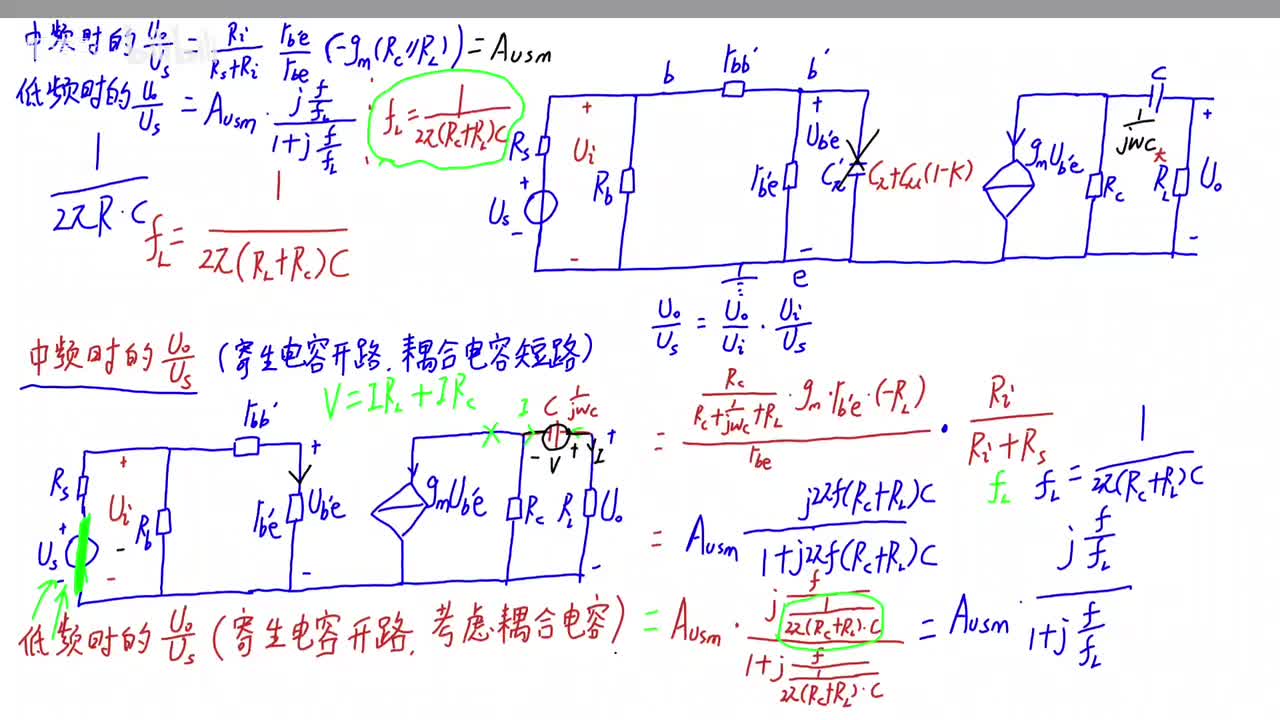 中频时的 U̇o/U̇s = Ri/(Rs+Ri) · rb'e/rbe (-gm(Rc//RL)) = Ausm
低频时的 Uo/Us = Ausm · (j f/fL)/(1+j f/fL)
fL = 1/(2π(Rc+RL)C)
1/(2πR·C)
fL = 1/(2π(RL+Rc)C)
b rbb' b'
Rs + Ui - Rb
+ Us -
rb'e + Ub'e -
Cπ' Cπ+Cμ(1-K)
e
gmUb'e Rc
C 1/jwc
RL + Uo -
Uo/Us = Uo/Ui · Ui/Us
中频时的 Uo/Us (寄生电容开路.耦合电容短路)
V=IRL+IRc
rbb'
Rs + Ui - Rb
+ Us -
rb'e + Ub'e -
gmUb'e Rc
I C 1/jwc
- V + I
RL + Uo -
= (Rc/(Rc+1/jwc+RL) · gm·rb'e·(-RL))/rbe · Ri/(Ri+Rs)
fL fL = 1/(2π(Rc+RL)C)
= Ausm j2πf(Rc+RL)C/(1+j2πf(Rc+RL)C)
低频时的 Uo/Us (寄生电容开路.考虑耦合电容)
= Ausm · (j f/(1/(2π(Rc+RL)·C)))/(1+j f/(1/(2π(Rc+RL)·C))) = Ausm · (j f/fL)/(1+j f/fL)